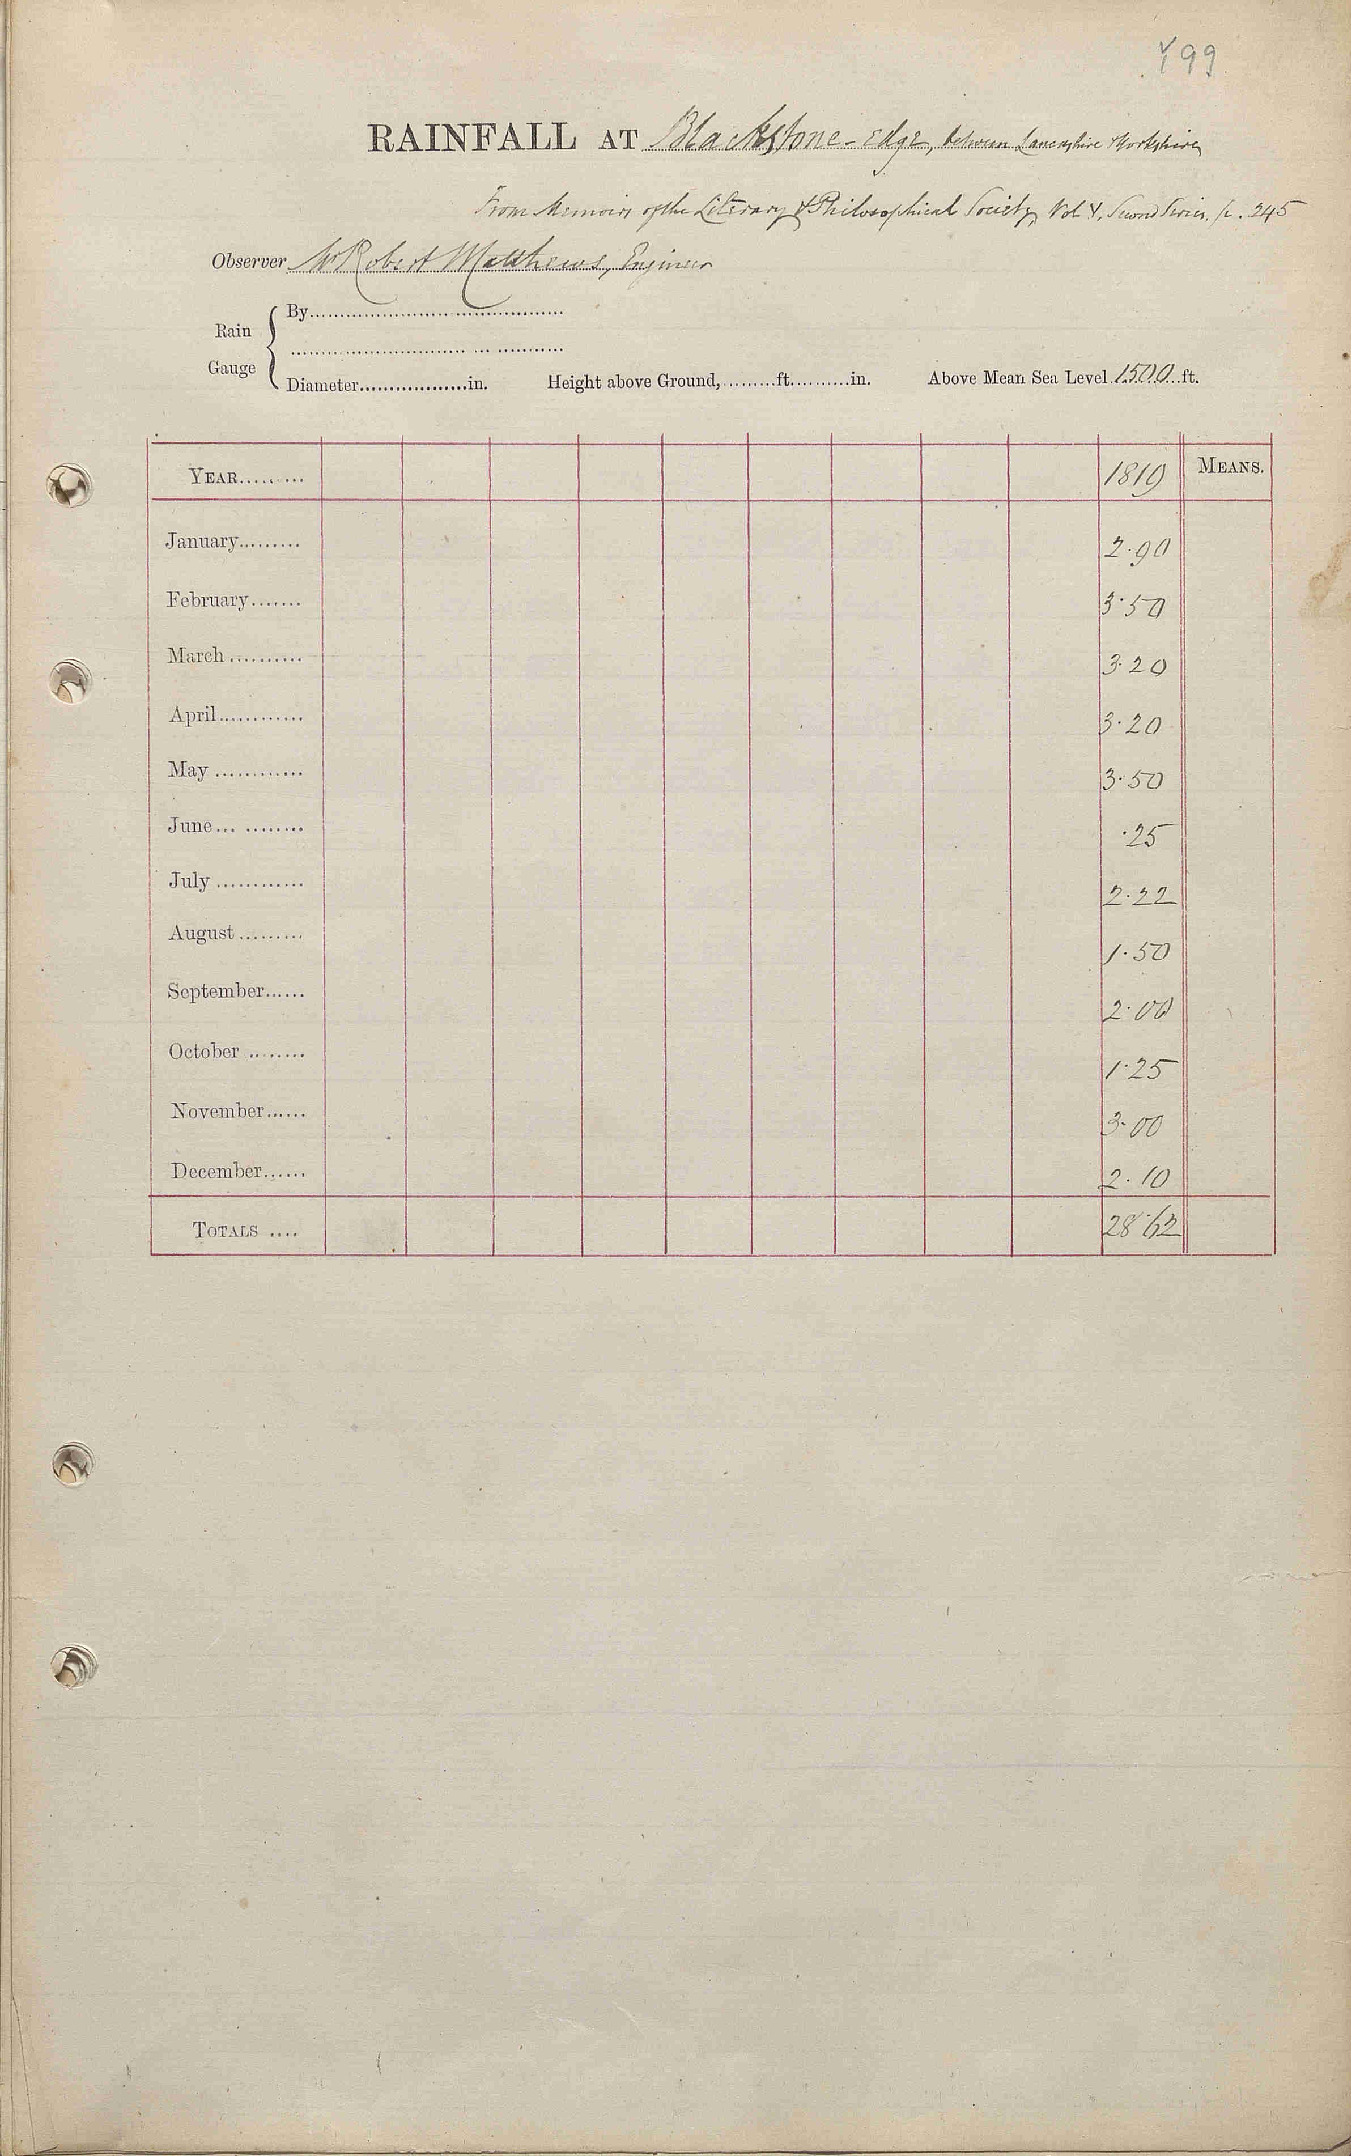 Y99
RAINFALL AT Blackstone-Edge, between Lancashire & Yorkshire,
From Memoirs of the Literary & Philosophical Society, Vol V, Second Series, p. 245
Observer Mr Robert Matthews, Engineer
Rain Gauge { By
Diameter..................in. Height above Ground,.........ft..........in. Above Mean Sea Level 1500 ft.
YEAR......... 1819 MEANS.
January......... 2.90
February....... 3.50
March.......... 3.20
April............ 3.20
May ............ 3.50
June... ........ .25
July ............ 2.22
August ......... 1.50
September...... 2.00
October ........ 1.25
November...... 3.00
December...... 2.10
TOTALS .... 28.62